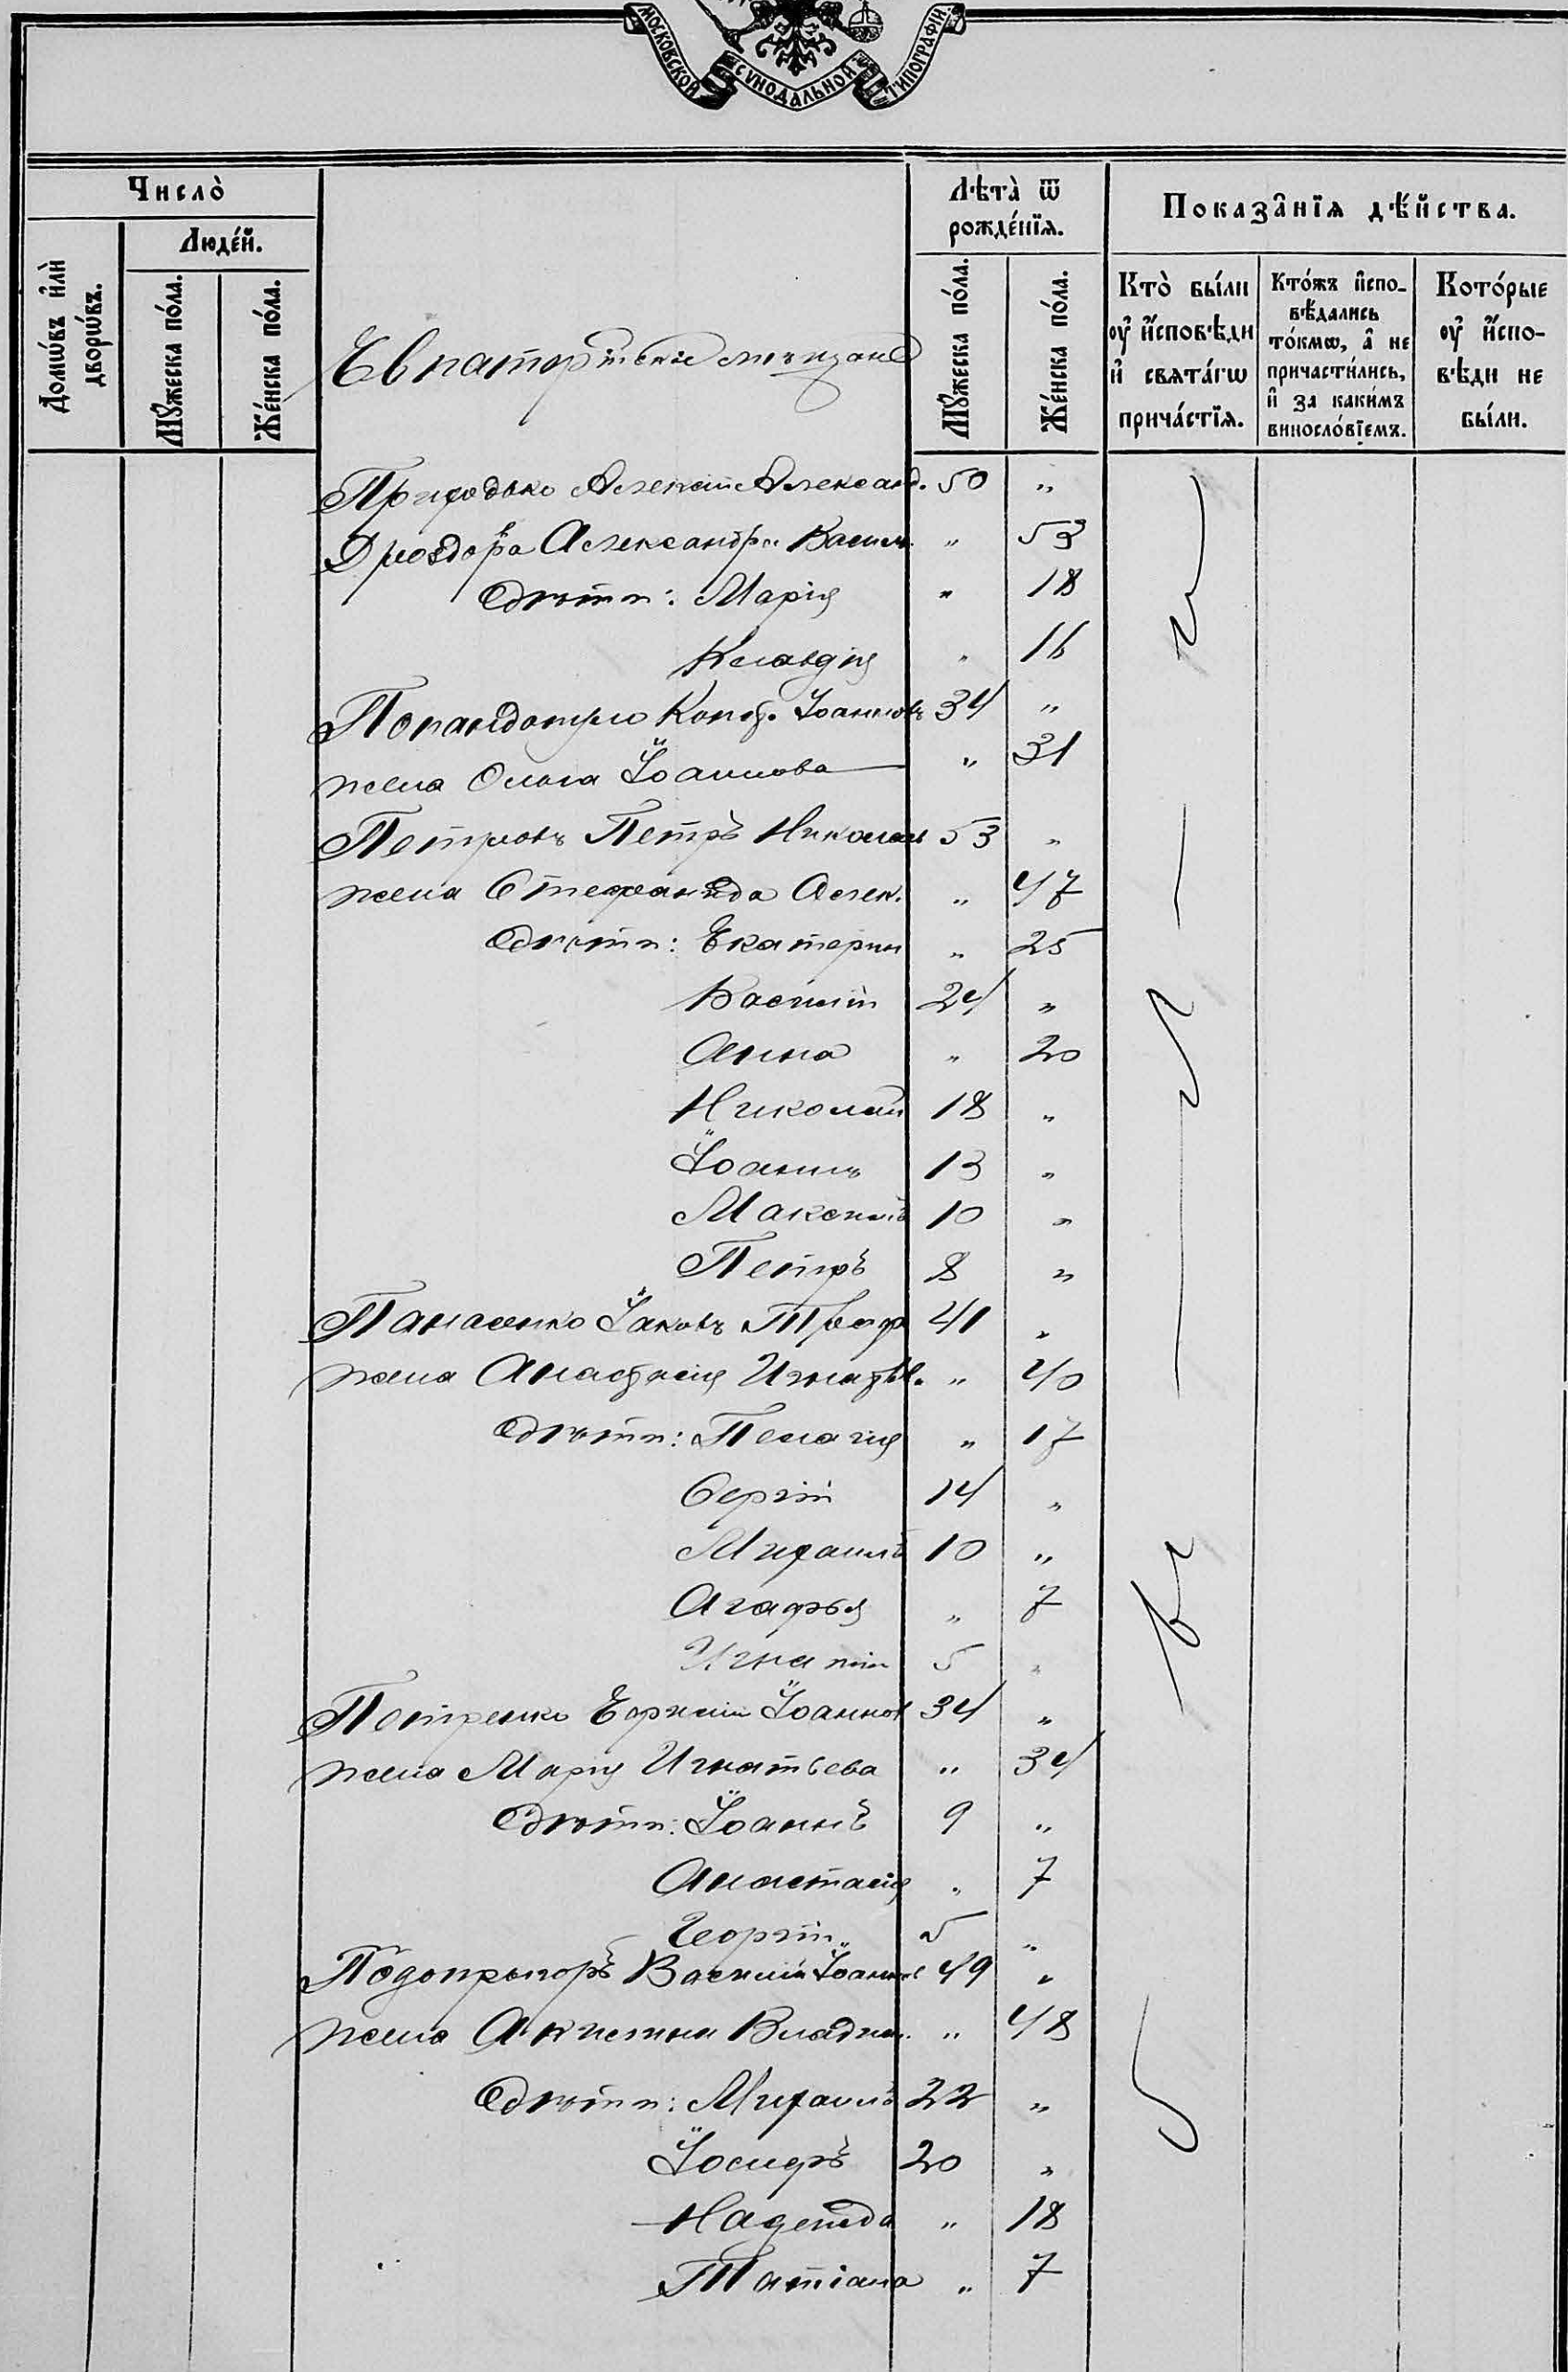 МОСКОВСКОЙ СѴНОДАЛЬНОЙ ТИПОГРАФІИ.
Число̀
Домѡ́въ и҆лѝ дворѡ́въ.
Люде́й.
Мꙋ́жеска по́ла.
Же́нска по́ла.
Лѣта̀ ѿ рожде́нїѧ.
Мꙋ́жеска по́ла.
Же́нска по́ла.
Показа̑нїѧ дѣ́йства.
Кто̀ бы́ли оу҆ и҆́сповѣди и҆ свѧта́гѡ прича́стїѧ.
Кто́жъ и҆спо-вѣ́дались то́кмѡ, а҆ не причасти́лись, и҆ за каки́мъ винословїемъ.
Кото́рые оу҆ и҆́спо-вѣди не бы́ли.
Евпаторійскіе мѣщане
Приходько Алексій Александ. 50 "
Дроздова Александра Васил. " 53
дѣти: Марія " 18
Клавдія " 16
Іоаннов 34 "
жена Ольга Іоаннова " 31
Петровъ Петръ Николаев 53 "
жена Стефанида Алек. " 47
дѣти: Екатерин " 25
Василій 24 "
Анна " 20
Николай 18 "
Іоаннъ 13 "
Максимъ 10 "
Петръ 8 "
Панасенко Іаковъ Троф 41 "
жена Анастасія Игнатьев. " 40
дѣти: Пелагія " 17
Сергій 14 "
Михаилъ 10 "
Агафья " 7
Игнатій 5 "
Петренко Іоаннов 34 "
жена Марія Игнатьева " 34
дѣти: Іоаннъ 9 "
Анастасія " 7
Георгій 5 "
Подопригоръ Василій Іоаннов 49 "
жена Акилина Владим. " 48
дѣти: Михаилъ 22 "
Іосифъ 20 "
Надежда " 18
Татіана " 7